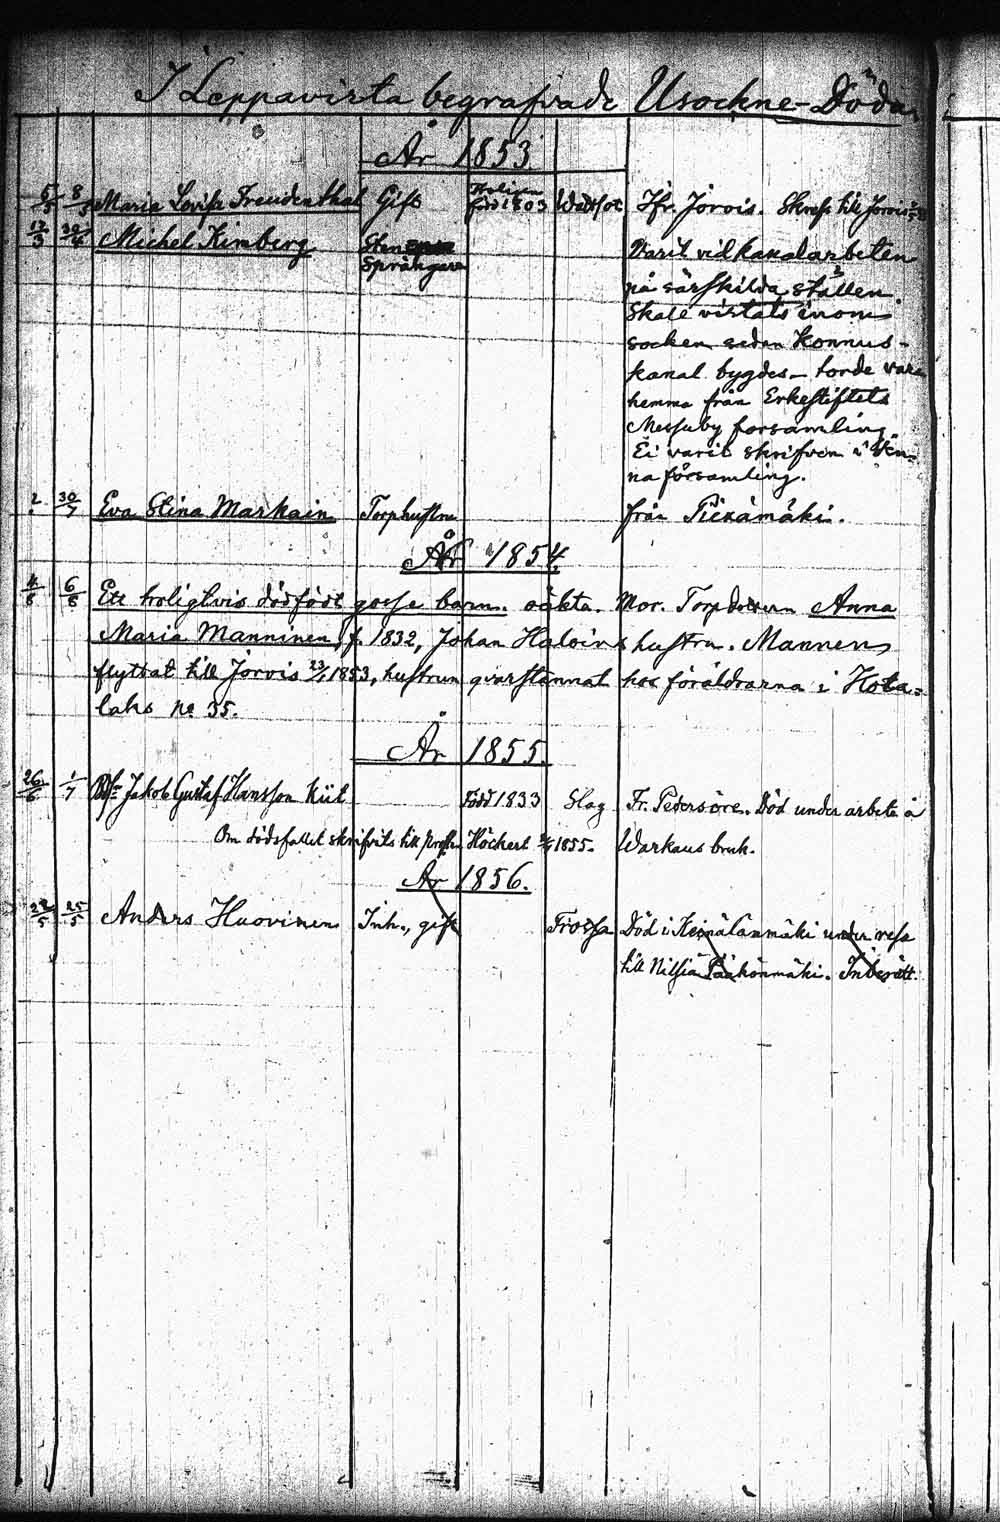 I Leppavirta begrafvade Usockne-Döda
År 1853.
5/3 8/3 Maria Lovisa Freudenthal Gift född 1803 Wattsot Ifr. Jorois. Skrefs till Jorois
12/3 30/4 Michel Kimberg Sten Varit vid kanalarbeten
Sprängare
på särskilda ställen.
Skall vistats inom
socken sedan Konnus-
kanal bygdes - torde vara
hemma från Erkestiftets
Messuby forsamling
Ei varit skrifven i den-
na församling.
? 30/7 Eva Stina Markain Torphustru från
År 1854.
4/8 6/8 Ett troligtvis dödfödt gosse barn. oäkta. Mor. Torpdottern Anna
Maria Manninen, f. 1832, Johan hustru. Mannen
flyttat till Jorvis 1853, hustrun qvarstannat hos föräldrarna i Kota-
laks no 35.
År 1855.
26/6 1/7 Jakob Gustaf Hansson Kiit Född 1833 Slag Fr. Pedersöre. Död under arbete å
Om dödsfallet skrifvits till Höckert 1855. Warkaus bruk.
År 1856.
22/5 25/5 Anders Huovinen Inh., gift Frossa Död i under resa
till Nilsiä